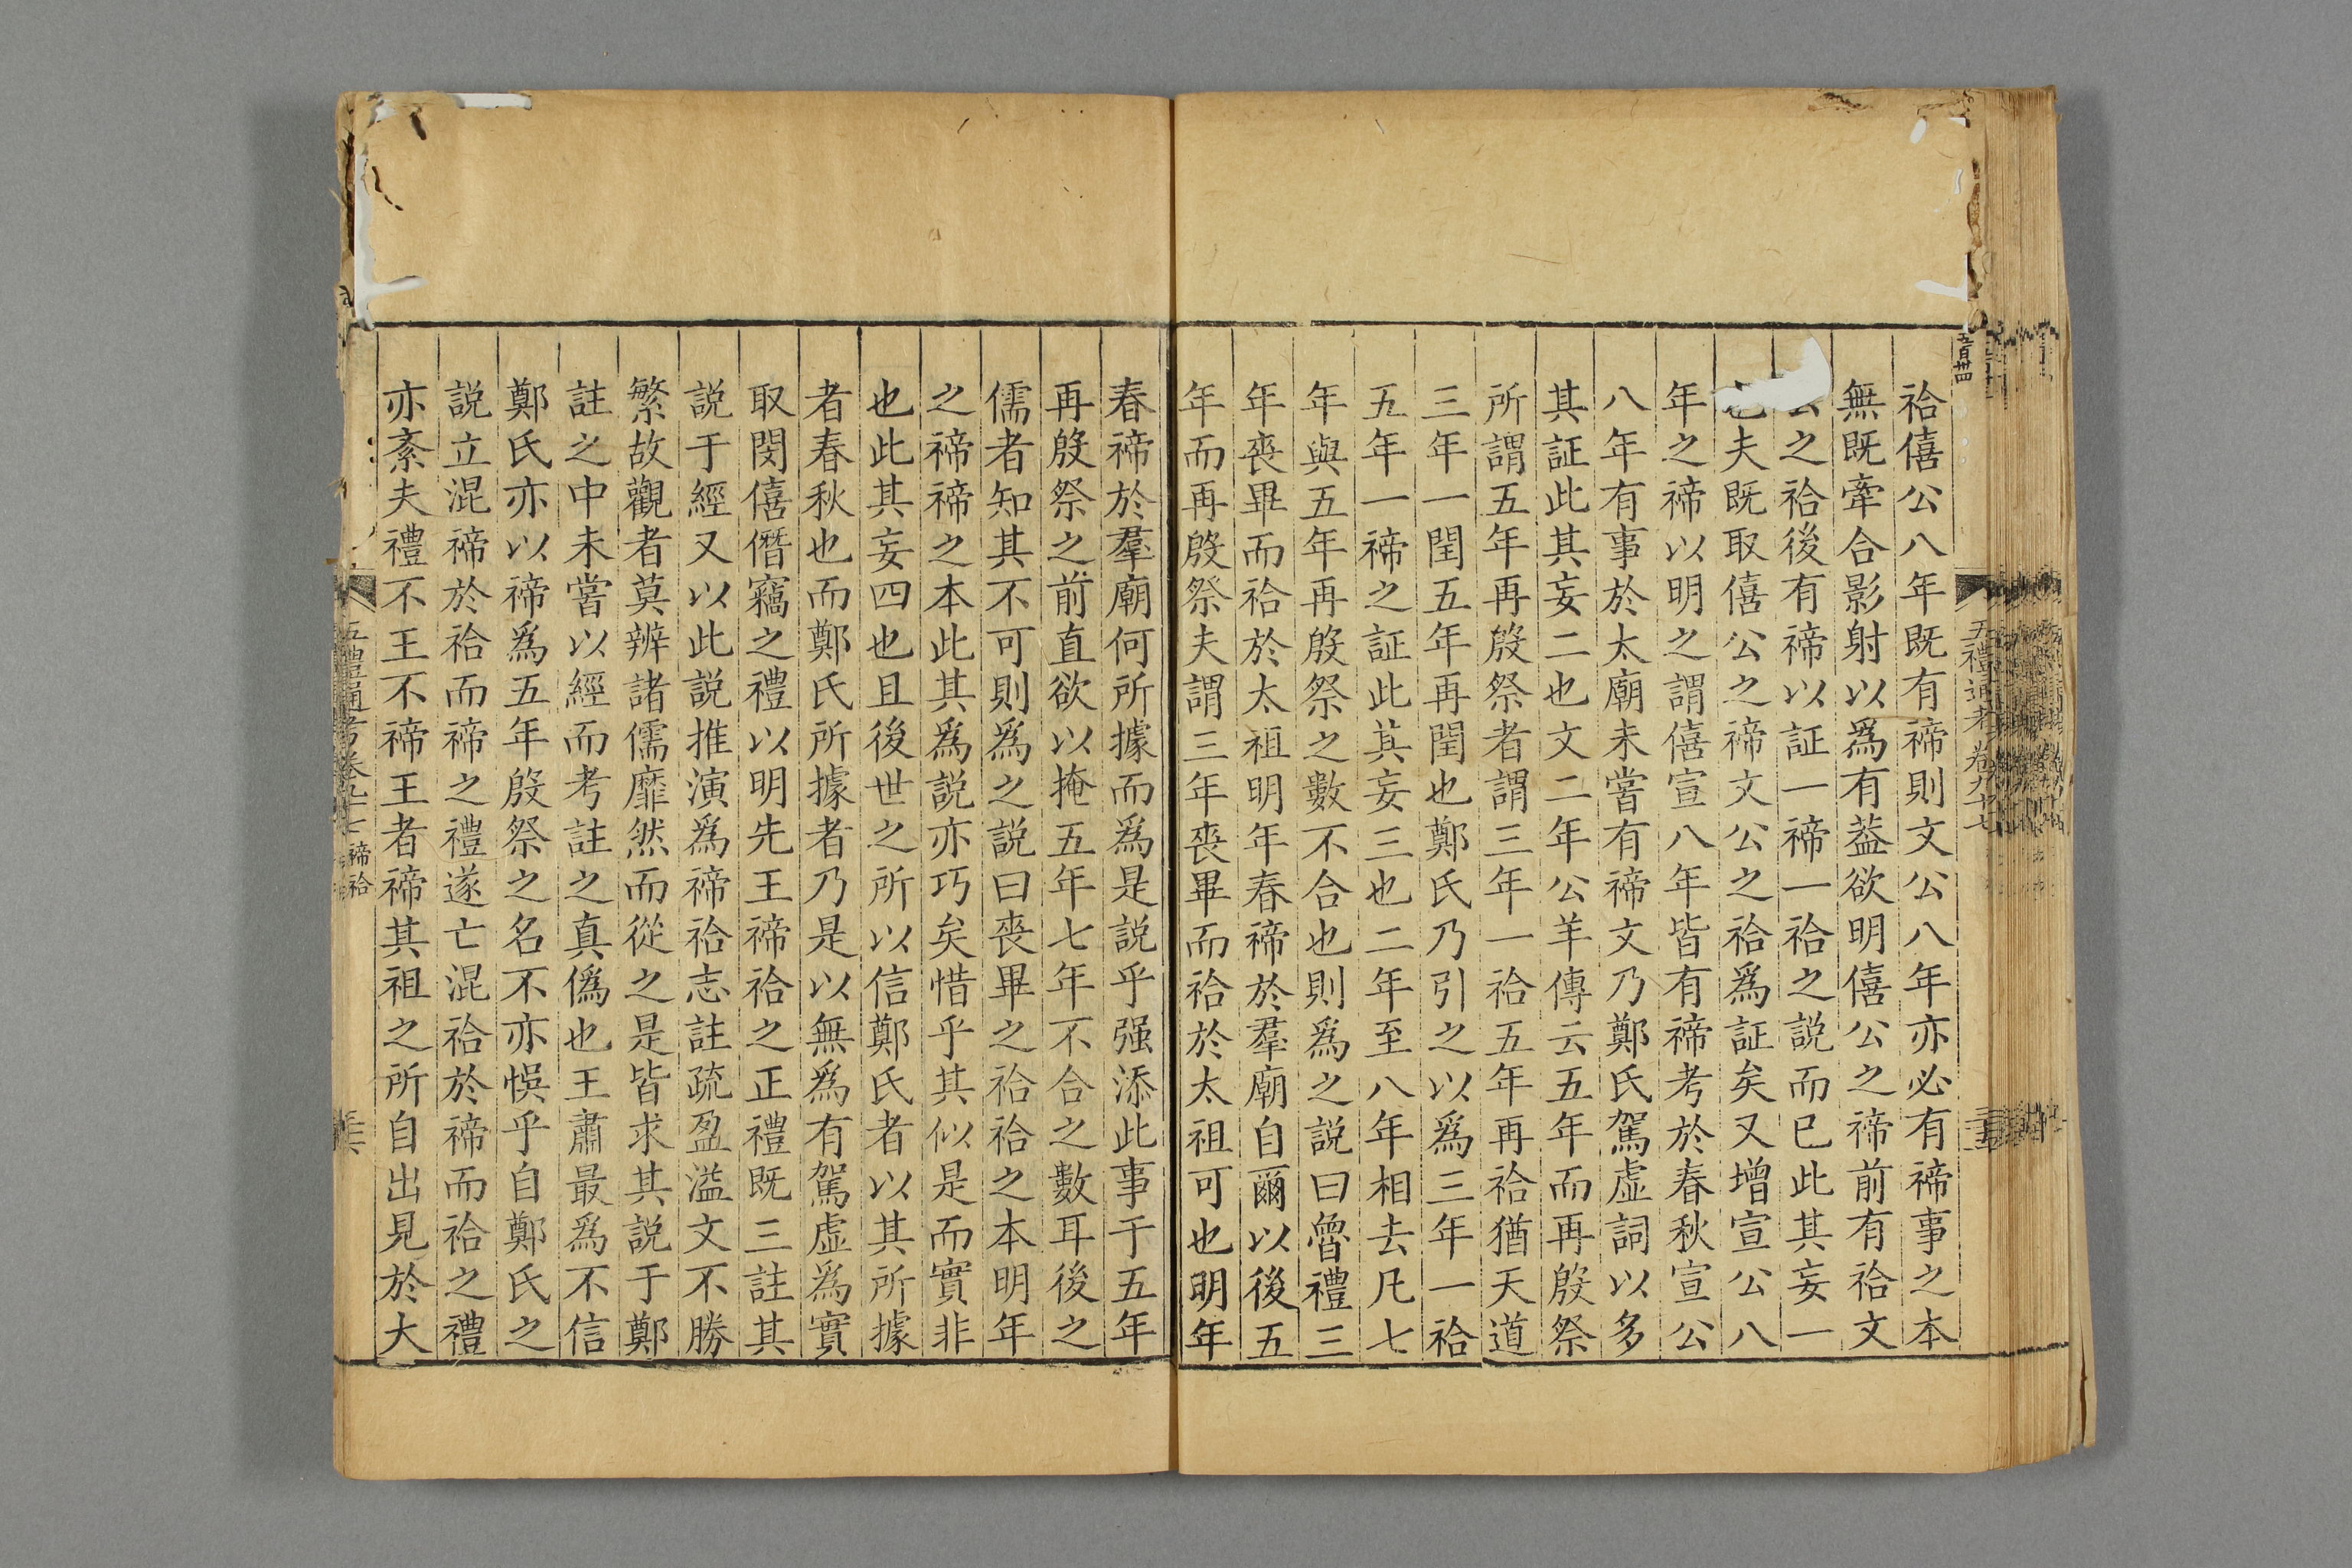 祫僖公八年既有禘則文公八年亦必有禘事之本
無既牽合影射以爲有葢欲明僖公之禘前有祫文
之祫後有禘以証一禘一祫之説而已此其妄一
夫既取僖公之禘文公之祫爲証矣又增宣公八
年之禘以明之謂僖宣八年皆有禘考於春秋宣公
八年有事於太廟未嘗有禘文乃鄭氏駕虛詞以多
其証此其妄二也文二年公羊傳云五年而再殷祭
所謂五年再殷祭者謂三年一祫五年再祫猶天道
三年一閏五年再閏也鄭氏乃引之以爲三年一祫
五年一禘之証此其妄三也二年至八年相去凡七
年與五年再殷祭之數不合也則爲之説曰魯禮三
年喪畢而祫於太祖明年春禘於羣廟自爾以後五
年而再殷祭夫謂三年喪畢而祫於太祖可也明年
五百卅四
五禮通考卷九十七
春禘於羣廟何所據而爲是説乎强添此事于五年
再殷祭之前直欲以掩五年七年不合之數耳後之
儒者知其不可則爲之説曰喪畢之祫祫之本明年
之禘禘之本此其爲説亦巧矣惜乎其似是而實非
也此其妄四也且後世之所以信鄭氏者以其所據
者春秋也而鄭氏所據者乃是以無爲有駕虛爲實
取閔僖僭竊之禮以明先王禘祫之正禮既三註其
説于經又以此説推演爲禘祫志註疏盈溢文不勝
繁故觀者莫辨諸儒靡然而從之是皆求其説于鄭
註之中未嘗以經而考註之真僞也王肅最爲不信
鄭氏亦以禘爲五年殷祭之名不亦悞乎自鄭氏之
説立混禘於祫而禘之禮遂亡混祫於禘而祫之禮
亦紊夫禮不王不禘王者禘其祖之所自出見於大
五禮通考卷九十七 禘祫